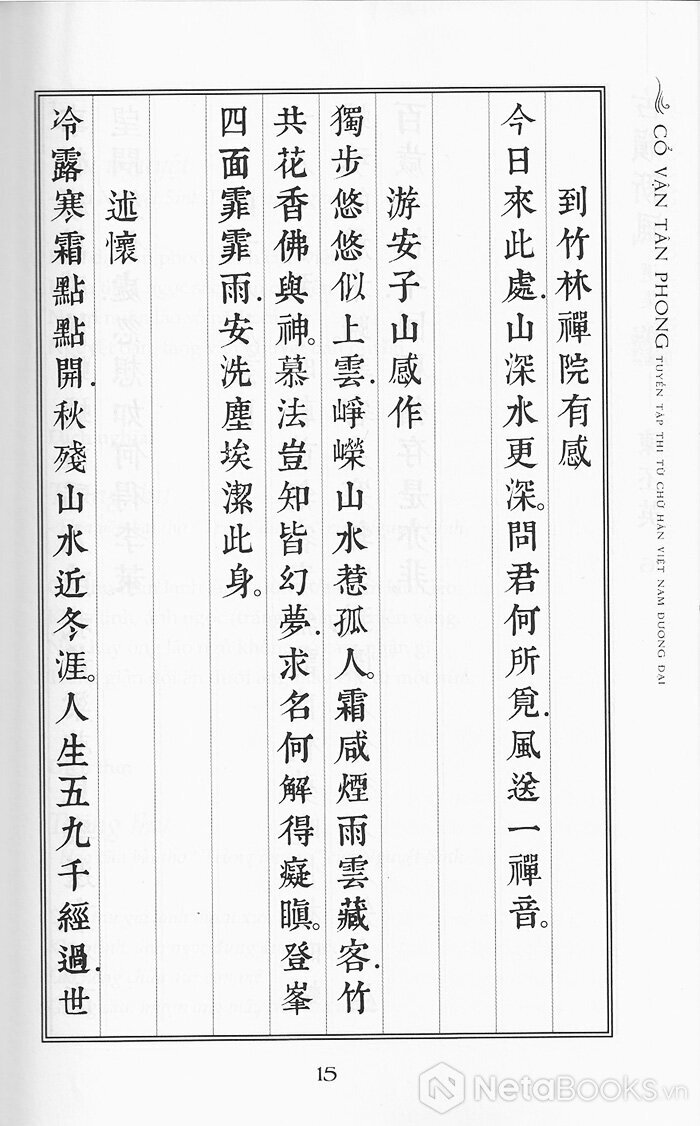 CỔ VẬN TÂN PHONG TUYỂN TẬP THI TỪ CHỮ HÁN VIỆT NAM ĐƯƠNG ĐẠI
到竹林禪院有感
今日來此處.山深水更深。問君何所覓.風送一禪音。
游安子山感作
獨步悠悠似上雲.崢嶸山水惹孤人。霜咸煙雨雲藏客.竹
共花香佛與神。慕法豈知皆幻夢.求名何解得癡瞋。登峯
四面霏霏雨.安洗塵埃潔此身。
述懷
冷露寒霜點點開.秋殘山水近冬涯。人生五九千經過.世
15
NetaBooks.vn